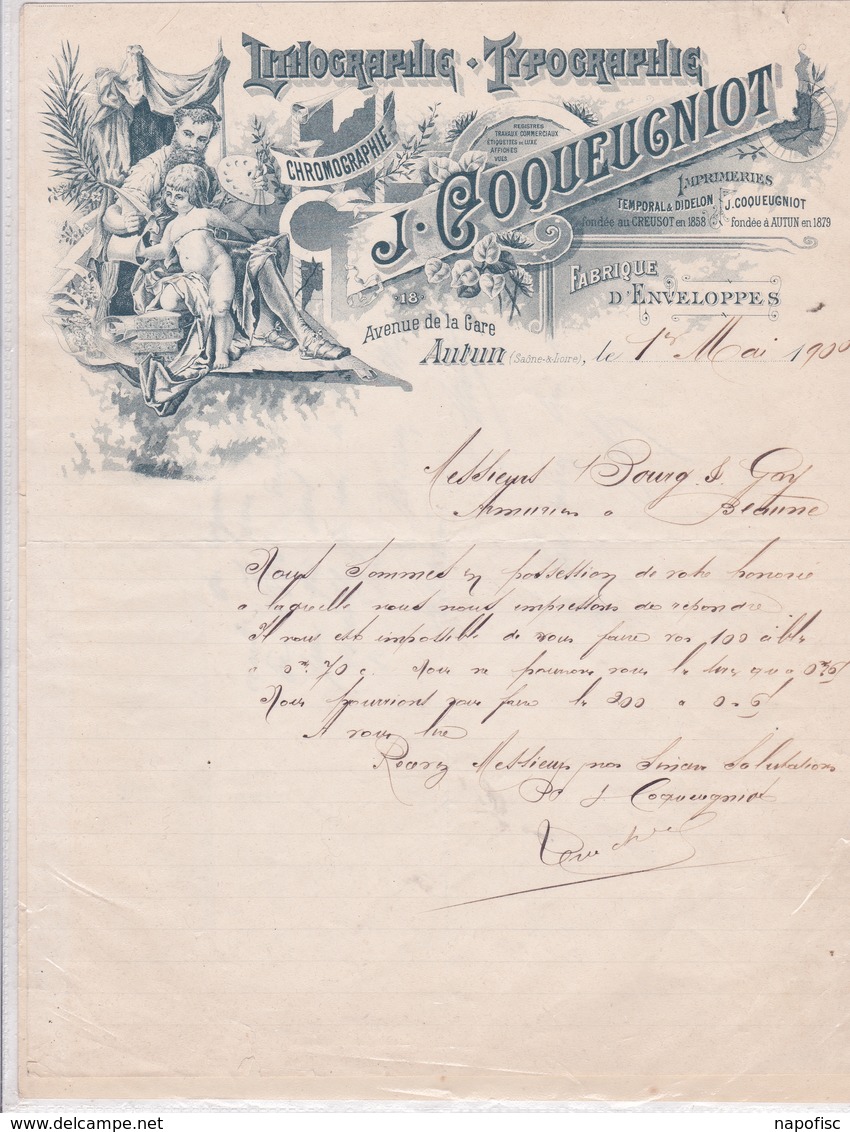 LITHOGRAPHIE - TYPOGRAPHIE
CHROMOGRAPHIE
REGISTRES
TRAVAUX COMMERCIAUX
ÉTIQUETTES DE LUXE
AFFICHES
VUES
J. COQUEUGNIOT
IMPRIMERIES
TEMPORAL & DIDELON
fondée au CREUSOT en 1858
J. COQUEUGNIOT
fondée à AUTUN en 1879
FABRIQUE
D'ENVELOPPES
18
Avenue de la Gare
Autun (Saône-&-Loire), le 1er Mai 1900
Messieurs Bourg & Gay
Armuriers a Beaune
Nous sommes en possession de votre honorée
a laquelle nous nous empressons de repondre
Il nous est impossible de vous faire vos 100
a 0 70 c. Nous ne pouvons vous le
Nous pourrions vous faire le 200 a
A vous lire
Recevez Messieurs nos Sincères Salutations
J Coqueugniot
napofisc